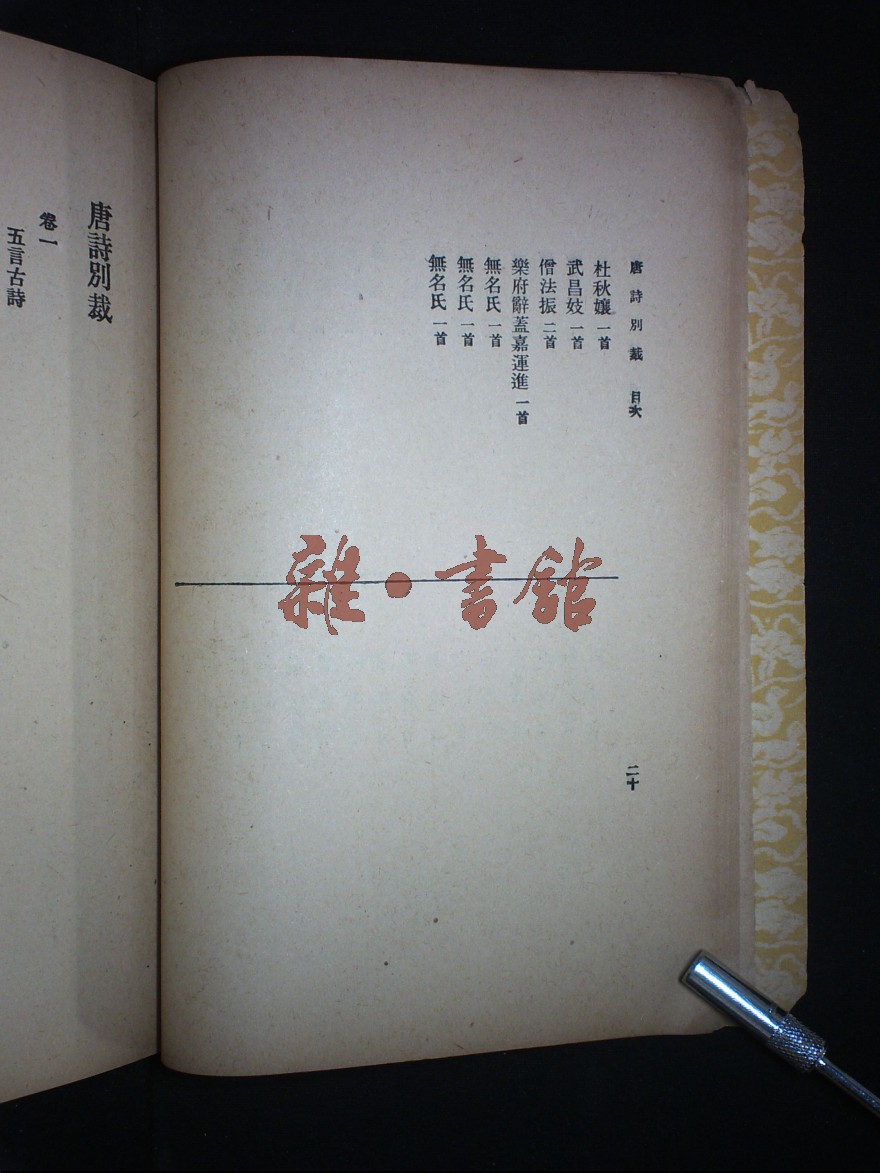 唐詩別裁 目次
杜秋孃 一首
武昌妓 一首
僧法振 二首
樂府辭蓋嘉運進 一首
無名氏 一首
無名氏 一首
無名氏 一首
二十
雜·書館
唐詩別裁
卷一
五言古詩